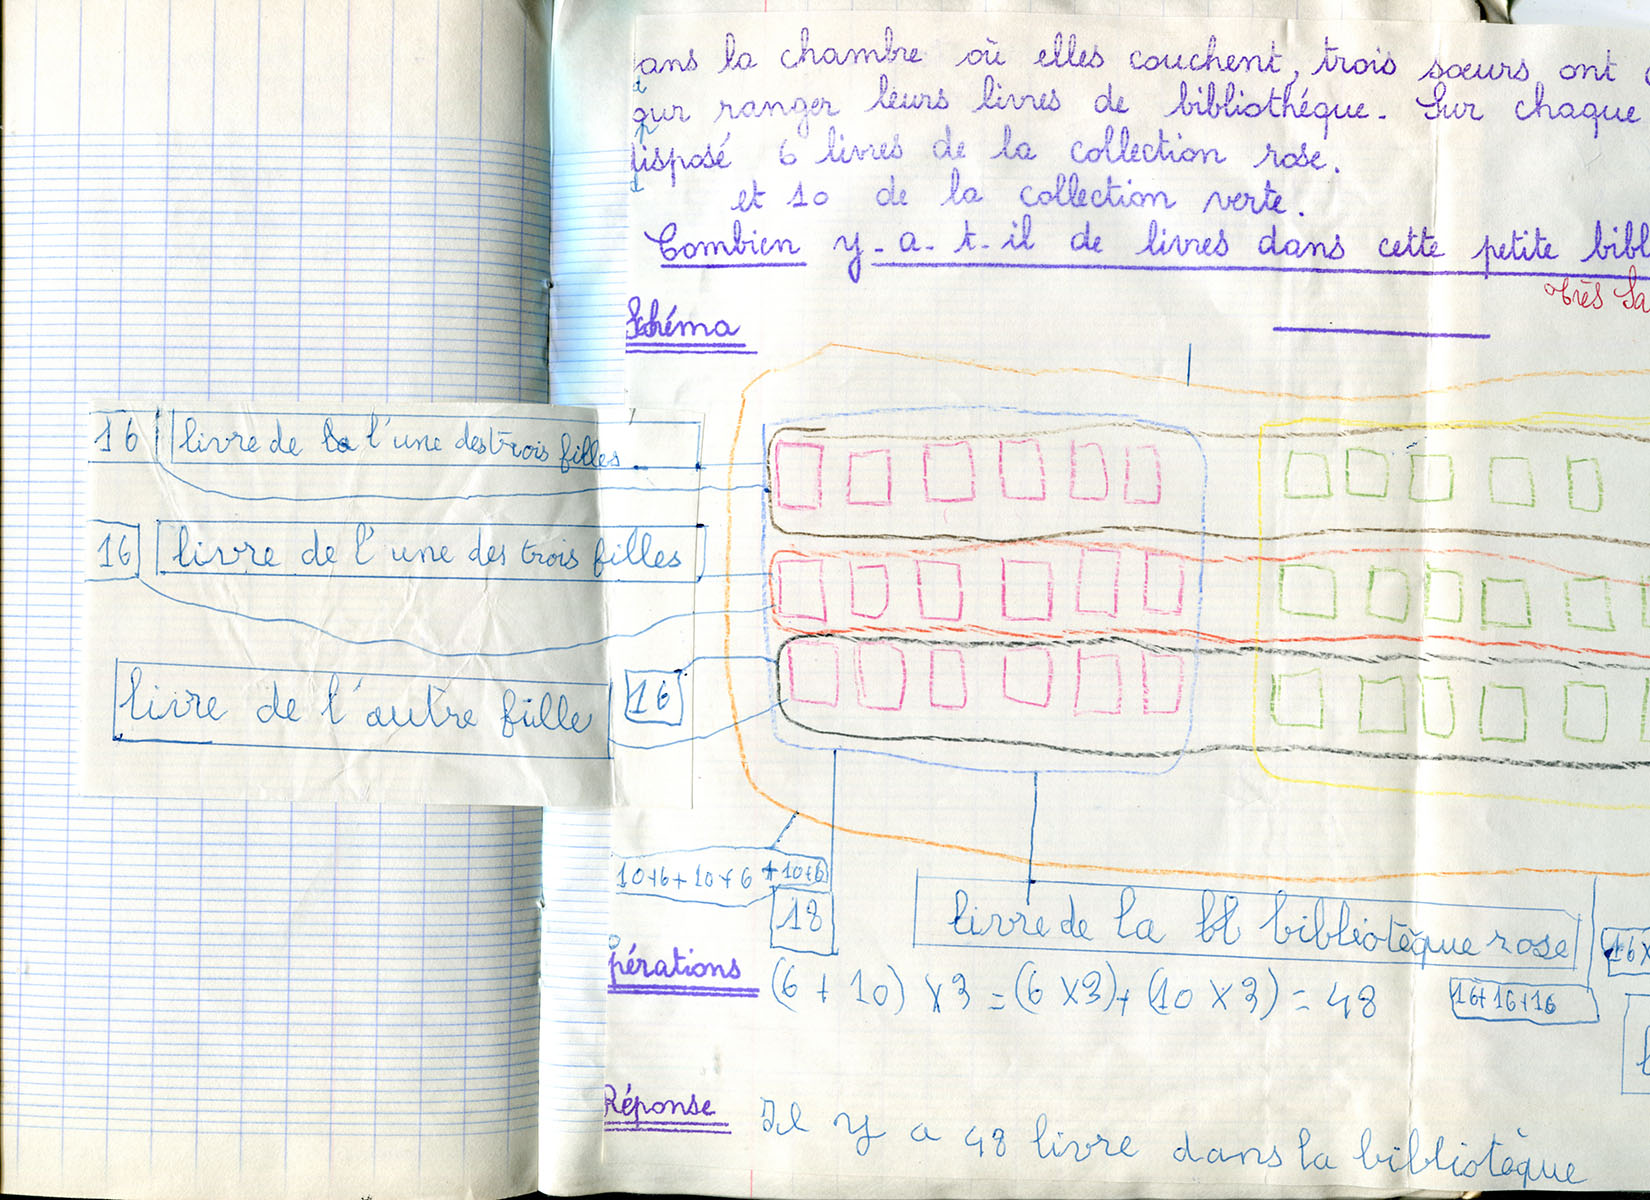 ans la chambre où elles couchent, trois sœurs ont
d
our ranger leurs livres de bibliothéque. Sur chaque
p
disposé 6 livres de la collection rose.
et 10 de la collection verte.
Combien y-a-t-il de livres dans cette petite bibl
Schéma
16 livre de la l'une des trois filles
16 livre de l'une des trois filles
livre de l'autre fille 16
10+6+10+6+10+6
18
livre de la bl bibliotèque rose
16×
Opérations (6 + 10) × 3 = (6 × 3) + (10 × 3) = 48
16+16+16
Réponse Il y a 48 livre dans la bibliotèque